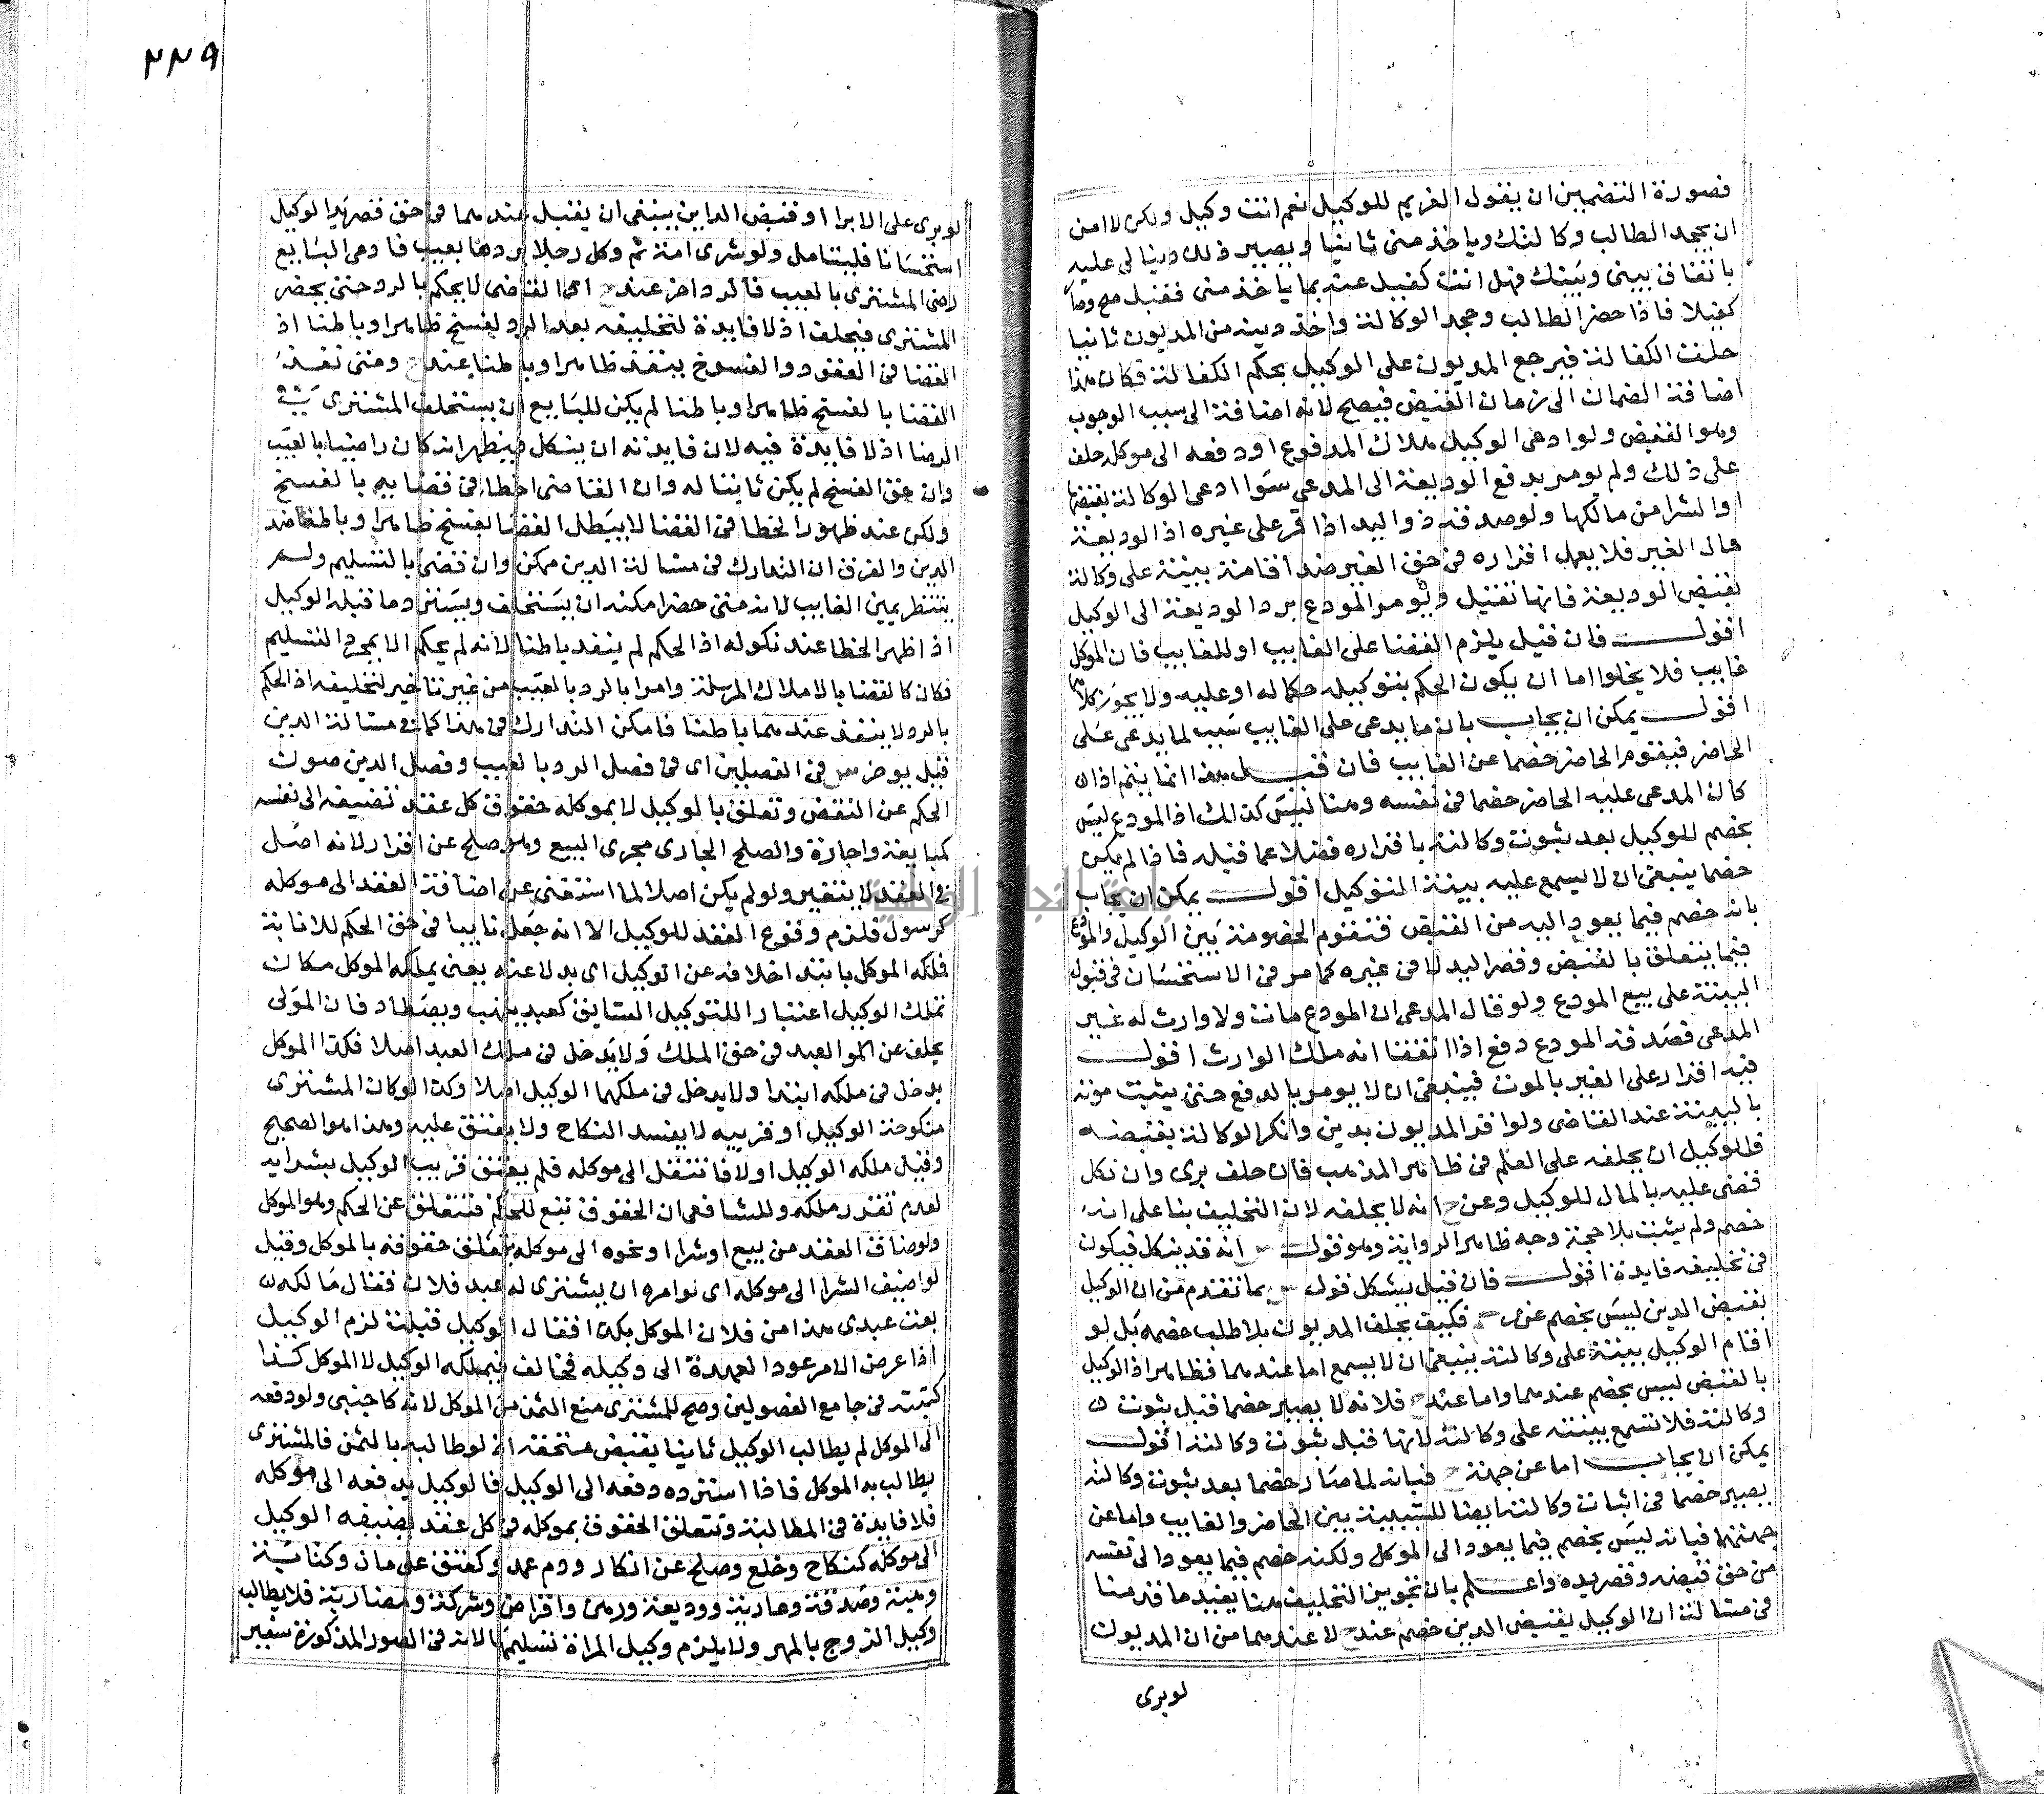 ٢٣٩
فصورة التضمين ان يقول الغريم للوكيل نعم انت وكيل ولكن لا امن
ان يجحد الطالب وكالتك وياخذ مني ثانيا ويصير ذلك دينا لي عليه
باتفاق بيني وبينك فهل انت كفيل عنه بما ياخذ مني فقبل صح وصار
كفيلا فاذا حضر الطالب وجحد الوكالة واخذ دينه من المديون ثانيا
حلت الكفالة فيرجع المديون على الوكيل بحكم الكفالة فكان هذا
اضافة الضمان الى زمان القبض فيصح لانه اضافة الى سبب الوجوب
وهو القبض ولو ادعى الوكيل هلاك المدفوع او دفعه الى موكله حلف
على ذلك ولم يومر بدفع الوديعة الى المدعي سوا ادعى الوكالة بقبضها
او الشرا من مالكها ولو صدقه ذو اليد اذا قر على غيره اذ الوديعة
مال الغير فلا يعمل اقراره في حق الغير ضد اقامة بينة على وكالة
بقبض الوديعة فانها تقبل ويومر المودع برد الوديعة الى الوكيل
اقول فان قيل يلزم القضا على الغايب او للغايب فان الموكل
غايب فلا يخلوا اما ان يكون الحكم بتوكيله حكما له او عليه ولا يجوز كلاهما
اقول يمكن ان يجاب بان ما يدعى على الغايب سبب لما يدعى على
الحاضر فيقوم الحاضر خصما عن الغايب فان قيل هذا انما يتم اذا
كان المدعى عليه الحاضر خصما في نفسه وهنا ليس كذلك اذ المودع ليس
بخصم للوكيل بعد ثبوت وكالته باقراره فضلا عما قبله فاذا لم يكن
خصما ينبغي ان لا يسمع عليه بينة التوكيل اقول يمكن ان يجاب
بانه خصم فيما يعود اليه من القبض فتقوم الخصومة بين الوكيل والمودع
فيما يتعلق بالقبض وقصر اليد لا في غيره كما مر في الاستحسان في قبول
البينة على بيع المودع ولو قال المدعي ان المودع مات ولا وارث له غير
المدعي فصدقه المودع دفع اذا اتفقا انه ملك الوارث اقول
فيه اقرار على الغير بالموت فينبغي ان لا يومر بالدفع حتى يثبت موته
بالبينة عند القاضي ولو اقر المديون بدين وانكر الوكالة بقبضه
فللوكيل ان يحلفه على العلم في ظاهر المذهب فان حلف بري وان نكل
قضي عليه بالمال للوكيل وعن ح انه لا يحلفه لان التحليف بنا على انه
خصم ولم يثبت بلا حجة وجه ظاهر الرواية وهو قول انه قد ينكل فيكون
في تحليفه فايدة اقول فان قيل يشكل قول بما تقدم من ان الوكيل
بقبض الدين ليس بخصم عند فكيف يحلف المديون بلا طلب خصمه بل لو
اقام الوكيل بينة على وكالته ينبغي ان لا يسمع اما عندهما فظاهر اذ الوكيل
بالقبض ليس بخصم عندهما واما عند ح فلانه لا يصير خصما قبل ثبوت
وكالته فلا تسمع بينته على وكالته لانها قبل ثبوت وكالته اقول
يمكن ان يجاب اما عن جهة ح فبانه لما صار خصما بعد ثبوت وكالته
يصير خصما في اثبات وكالته ايضا للسببية بين الحاضر والغايب واما عن
جهتهما فبانه ليس بخصم فيما يعود الى الموكل ولكنه خصم فيما يعود الى نفسه
من حق قبضه وقصر يده واعلم بان تجويز التحليف هنا يفيد ما قدمنا
في مسالة ان الوكيل بقبض الدين خصم عند ح لا عندهما من ان المديون
لو بري
لو بري على الابرا او قبض الدين ينبغي ان يقبل عندهما في حق قصر يد الوكيل
استحسانا فليتامل ولو شرى امة ثم وكل رجلا بردها بعيب فادعى البايع
رضى المشتري بالعيب فالرد اخر عند ح اي القاضي لا يحكم بالرد حتى يحضر
المشتري فيحلف اذ لا فايدة لتحليفه بعد الرد لفسخ ظاهرا وباطنا اذ
القضا في العقود والفسوخ ينفذ ظاهرا وباطنا عند ح ومتى نفذ
القضا بالفسخ ظاهرا وباطنا لم يكن للبايع ان يستحلف المشتري في
الرضا اذ لا فايدة فيه لان فايدته ان ينكل فيظهر انه كان راضيا بالعيب
وان حق الفسخ لم يكن ثابتا له وان القاضي اخطا في قضايه بالفسخ
ولكن عند ظهور الخطا في القضا لا يبطل القضا بفسخ ظاهرا وباطنا ضد
الدين والفرق ان التدارك في مسالة الدين ممكن وان قضى بالتسليم ولم
ينتظر يمين الغايب لانه متى حضر امكنه ان يستحلف ويسترد ما قبله الوكيل
اذا ظهر الخطا عند نكوله اذ الحكم لم ينفذ باطنا لانه لم يحكم الا بمجرد التسليم
فكان كالقضا بالاملاك المرسلة وامرا بالرد بالعيب من غير تاخير لتحليفه اذ الحكم
بالرد لا ينفذ عندهما باطنا فامكن التدارك في هذا كما في مسالة الدين
قيل يوخر في الفصلين اي في فصل الرد بالعيب وفصل الدين صون
الحكم عن النقض وتعلق بالوكيل لا بموكله حقوق كل عقد تضيفه الى نفسه
كمبايعة واجارة والصلح الجاري مجرى البيع وهو صلح عن اقرار لانه اصل
في العقد لا يتغير ولو لم يكن اصلا لما استغنى عن اضافة العقد الى موكله
كرسول فلزم وقوع العقد للوكيل الا انه جعل نايبا في حق الحكم للانابة
فملكه الموكل بابتدا خلافه عن الوكيل اي بدلا عنه يعني يملكه الموكل مكان
تملك الوكيل اعتبارا للتوكيل السابق كعبد يهب ويصطاد فان المولى
يخلف عن العبد في حق الملك ولا يدخل في ملك العبد اصلا فكذا الموكل
يدخل في ملكه ابتدا ولا يدخل في ملكهما الوكيل اصلا وكذا لو كان المشتري
منكوحة الوكيل او قريبه لا يفسد النكاح ولا يعتق عليه وهذا هو الصحيح
وقيل ملكه الوكيل اولا فانتقل الى موكله فلم يعتق قريب الوكيل بشرايه
لعدم تقرر ملكه وللشافعي ان الحقوق تبع للحكم فتتعلق عن الحكم وهو الموكل
ولو ضاف العقد من بيع او شرا او نحوه الى موكله يتعلق حقوقه بالموكل وقيل
لو اضيف الشرا الى موكله اي نوامره ان يشتري له عبد فلان فقال مالكه
بعت عبدي هذا من فلان الموكل بكذا فقال الوكيل قبلت لزم الوكيل
اذا عرض الامر عود العهدة الى وكيله فخالف فيملكه الوكيل لا الموكل كذا
كتبته في جامع الفصولين وصح للمشتري منع الثمن من الموكل لانه كاجنبي ولو دفعه
الى الموكل لم يطالب الوكيل ثانيا بقبض مستحقه اذ لو طالبه بالثمن فالمشتري
يطالب به الموكل فاذا استرده دفعه الى الوكيل فالوكيل يدفعه الى موكله
فلا فايدة في المطالبة وتتعلق الحقوق بموكله في كل عقد يضيفه الوكيل
الى موكله كنكاح وخلع وصلح عن انكار ودم عمد وكعتق على مال وكتابة
وهبة وصدقة وعارية ووديعة ورهن واقراض وشركة ومضاربة فلا يطالب
وكيل الزوج بالمهر ولا يلزم وكيل المراة تسليمها لانه في الصور المذكورة سفير